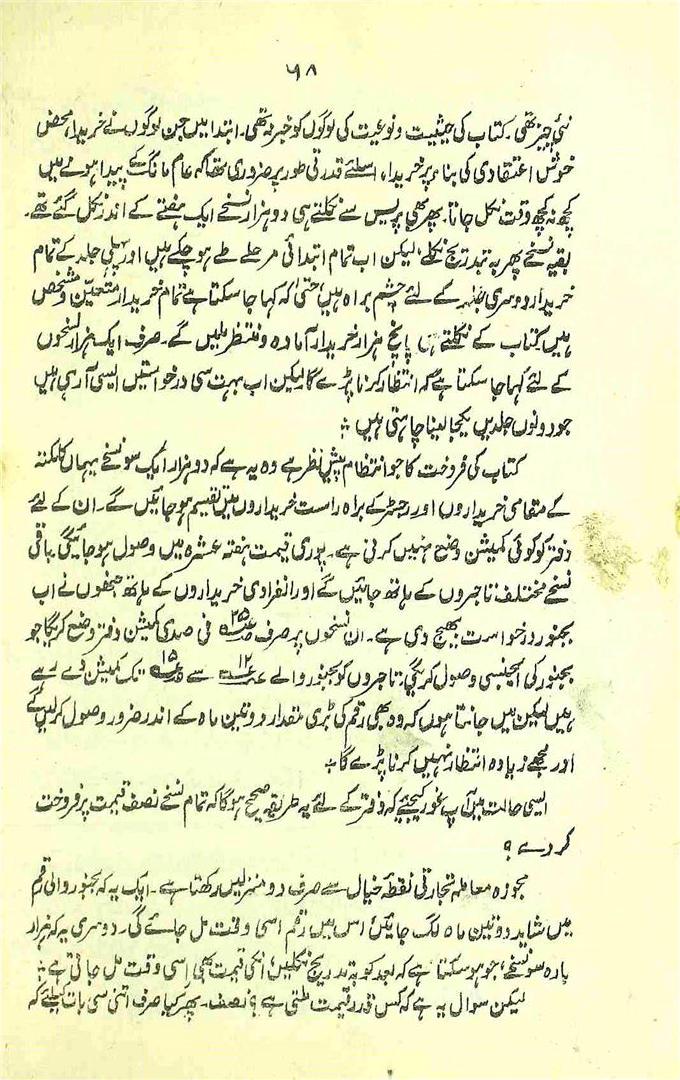 ۶۸
نئی چیز تھی۔ کتاب کی حیثیت و نوعیت کی لوگوں کو خبر نہ تھی۔ ابتدا میں جن لوگوں نے خریدا، محض
خوش اعتقادی کی بناء پر خریدا، اسلئے قدرتی طور پر ضروری تھا کہ عام مانگ کے پیدا ہونے میں
کچھ نہ کچھ وقت نکل جاتا۔ پھر بھی پریس سے نکلتے ہی دو ہزار نسخے ایک ہفتے کے اندر نکل گئے تھے۔
بقیہ نسخے پھر بہ تدریج نکلے، لیکن اب تمام ابتدائی مرحلے طے ہو چکے ہیں اور پہلی جلد کے تمام
خریدار دوسری جلد کے لئے چشم براہ ہیں، حتیٰ کہ کہا جا سکتا ہے تمام خریدار متعین و مشخص
ہیں کتاب کے نکلتے ہی پانچ ہزار خریدار آمادہ و منتظر ملیں گے۔ صرف ایک ہزار نسخوں
کے لئے کہا جا سکتا ہے کہ انتظار کرنا پڑے گا لیکن اب بہت سی درخواستیں ایسی آ رہی ہیں
جو دونوں جلدیں یکجا لینا چاہتی ہیں ؛
کتاب کی فروخت کا جو انتظام پیش نظر ہے وہ یہ ہے کہ دو ہزار ایک سو نسخے یہاں کلکتہ
کے مقامی خریداروں اور رجسٹر کے براہ راست خریداروں میں تقسیم ہو جائیں گے۔ ان کے لئے
دفتر کو کوئی کمیشن وضع نہیں کرنی ہے۔ پوری قیمت ہفتہ عشرہ میں وصول ہو جائیگی۔ باقی
نسخے مختلف تاجروں کے ہاتھ جائیں گے اور انفرادی خریداروں کے ہاتھ جنھوں نے اب
بجنور درخواست بھیج دی ہے۔ ان نسخوں پر صرف ۲۵ فی صدی کمیشن دفتر وضع کریگا جو
بجنور کی ایجنسی وصول کریگی؛ تاجروں کو بجنور والے ۱۲ سے ۱۵ تک کمیشن دے رہے
ہیں لیکن میں جانتا ہوں کہ وہ بھی رقم کی بڑی مقدار دو تین ماہ کے اندر ضرور وصول کر لیں گے
اور مجھے زیادہ انتظار نہیں کرنا پڑے گا ؛
ایسی حالت میں آپ غور کیجئے کہ دفتر کے لئے یہ طریقہ صحیح ہوگا کہ تمام نسخے نصف قیمت پر فروخت
کر دے ؟
مجوزہ معاملہ تجارتی نقطۂ خیال سے صرف دو منزلیں رکھتا ہے۔ ایک یہ کہ بجنور والی رقم
میں شاید دو تین ماہ لگ جائیں؛ اس میں رقم اسی وقت مل جائے گی۔ دوسری یہ کہ ہزار
بارہ سو نسخے، جو ہو سکتا ہے کہ بعد کو بہ تدریج نکلیں، انکی قیمت بھی اسی وقت مل جاتی ہے ؛
لیکن سوال یہ ہے کہ کس قدر قیمت ملتی ہے؟ نصف۔ پھر کیا صرف اتنی سی بات کیلئے کہ